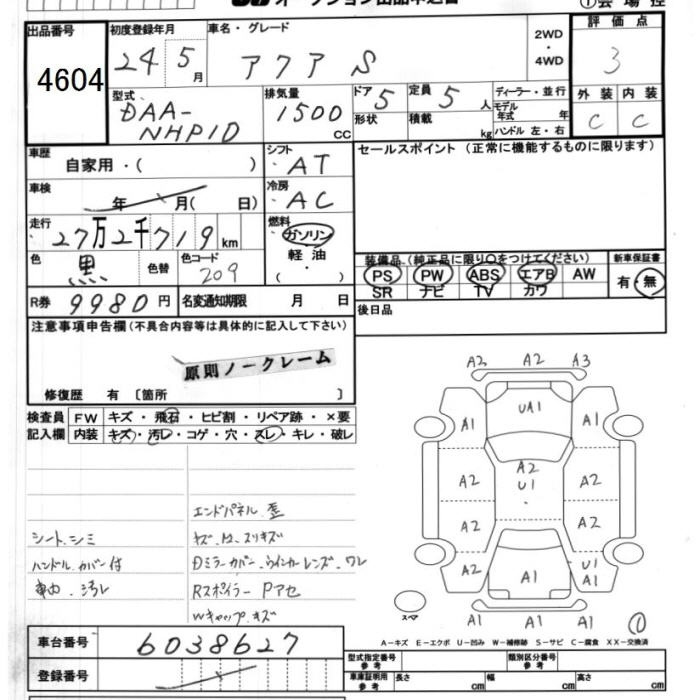 オークション出品申込書
①会場控
出品番号
4604
初度登録年月 24 5月
車名・グレード
アクア S
2WD・4WD
評価点
3
型式
DAA-NHP10
排気量
1500 CC
ドア 5
形状
定員 5 人
積載 kg
ディーラー・並行
モデル年式 年
ハンドル 左・右
外装 内装
C C
車歴
自家用・( )
シフト
AT
セールスポイント (正常に機能するものに限ります)
車検
年 月( 日)
冷房
AC
走行
27万2千719km
燃料
ガソリン
軽油
色 黒 色替
色コード 209
装備品 (純正品に限り○をつけてください)
PS PW ABS エアB AW
SR ナビ TV カワ
新車保証書
有・無
R券 9980円
名変通知期限 月 日
後日品
注意事項申告欄(不具合内容等は具体的に記入して下さい)
原則ノークレーム
修復歴 有 〔箇所 〕
検査員記入欄
FW キズ・飛石・ヒビ割・リペア跡・×要
内装 キズ・汚レ・コゲ・穴・スレ・キレ・破レ
エンドパネル 歪
シート.シミ
ハンドル.カバー付
車内.汚レ
キズ.凹.スリキズ
Dミラーカバー.ウインカーレンズ.ワレ
Rスポイラー Pアセ
Wキャップ.キズ
A2 A2 A3
UA1
A1 A1
A2 A2 A2
U1
A2 A2
A2 U1
A1
A1
A1 A1 A1
スペア
①
A-キズ E-エクボ U-凹み W-補修跡 S-サビ C-腐食 XX-交換済
車台番号 6038627
登録番号
型式指定番号参考
類別区分番号
車庫証明用参考
長さ cm
幅 cm
高さ cm